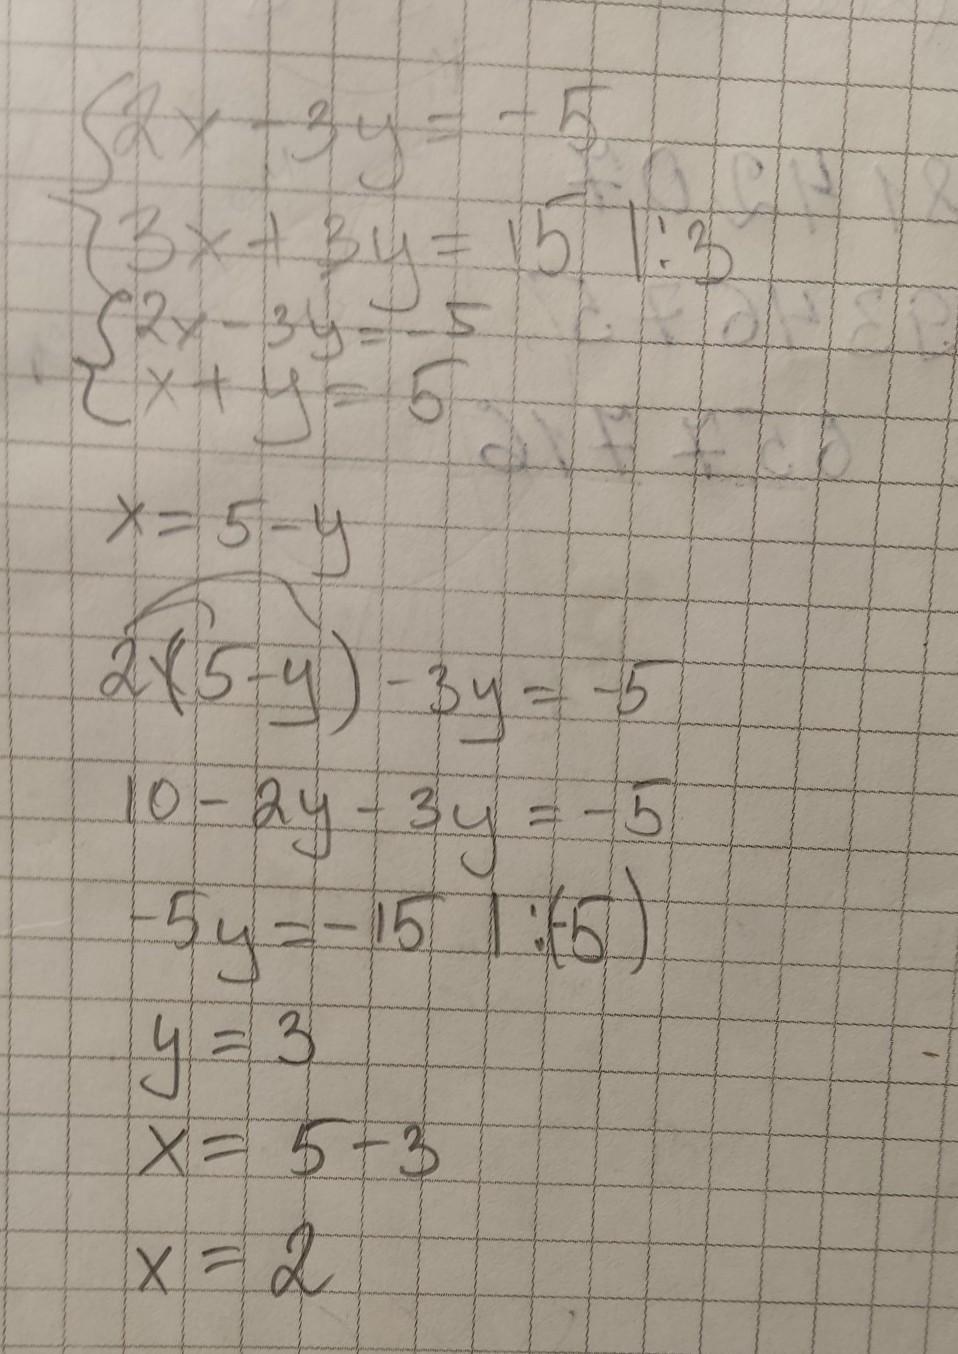 {2x - 3y = -5
{3x + 3y = 15 |:3
{2x - 3y = -5
{x + y = 5
x = 5 - y
2(5 - y) - 3y = -5
10 - 2y - 3y = -5
-5y = -15 |:(-5)
y = 3
x = 5 - 3
x = 2